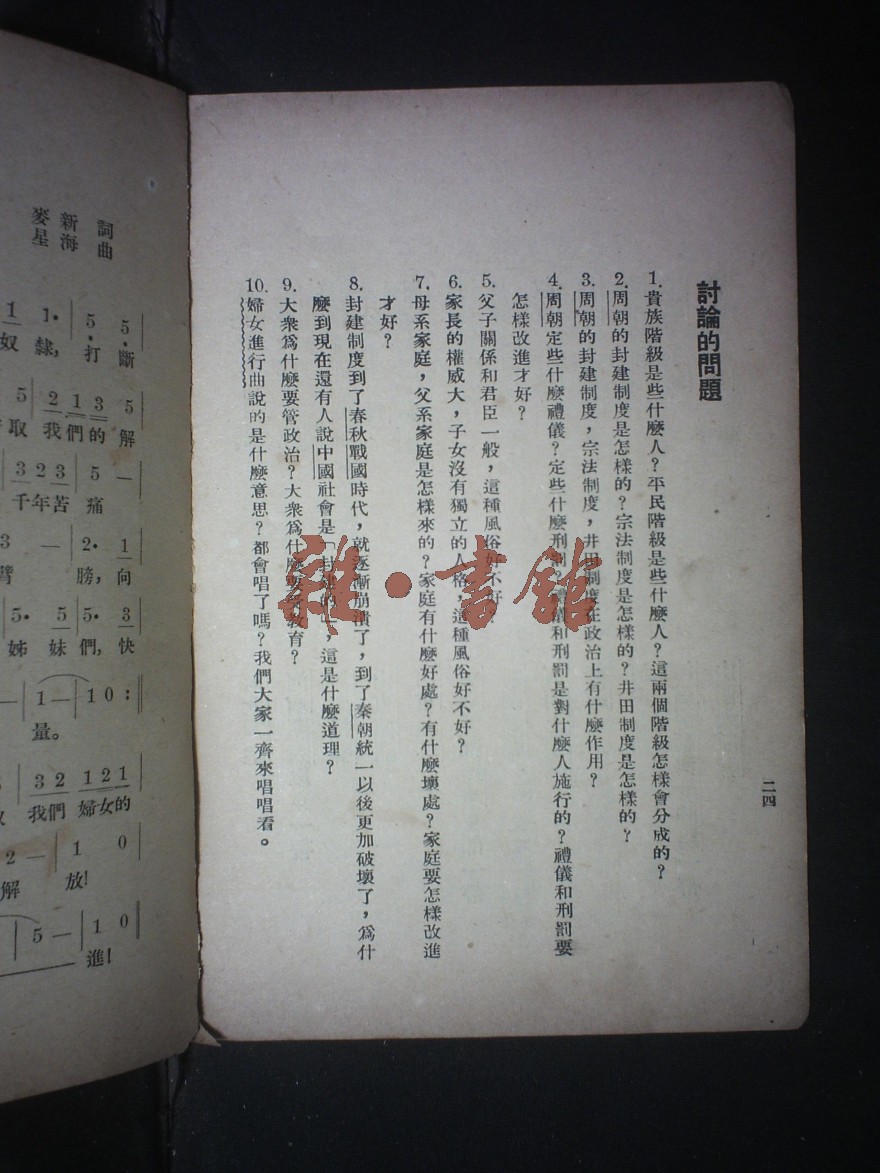 討論的問題
1. 貴族階級是些什麼人?平民階級是些什麼人?這兩個階級怎樣會分成的?
2. 周朝的封建制度是怎樣的?宗法制度是怎樣的?井田制度是怎樣的?
3. 周朝的封建制度,宗法制度,井田制度在政治上有什麼作用?
4. 周朝定些什麼禮儀?定些什麼刑罰?禮儀和刑罰是對什麼人施行的?禮儀和刑罰要
怎樣改進才好?
5. 父子關係和君臣一般,這種風俗好不好?
6. 家長的權威大,子女沒有獨立的人格,這種風俗好不好?
7. 母系家庭,父系家庭是怎樣來的?家庭有什麼好處?有什麼壞處?家庭要怎樣改進
才好?
8. 封建制度到了春秋戰國時代,就逐漸崩潰了,到了秦朝統一以後更加破壞了,爲什
麼到現在還有人說中國社會是「封建的」,這是什麼道理?
9. 大衆爲什麼要管政治?大衆爲什麼要受教育?
10. 婦女進行曲說的是什麼意思?都會唱了嗎?我們大家一齊來唱唱看。
二四
麥新 詞
星海 曲
1 1· 5 5·
奴 隸, 打 斷
5 2 1 3 5
取 我們的 解
3 2 3 5 —
千年苦 痛
3 — 2· 1
臂 膀, 向
5· 5 5· 3
姊 妹們, 快
1 — 1 0
量。
3 2 1 2 1
我們 婦女的
2 — 1 0
解 放!
5 — 1 0
進!
雜·書館